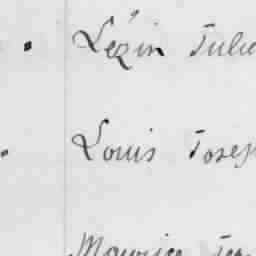 Lézin Julie
Louis Josep
Maurice Jea